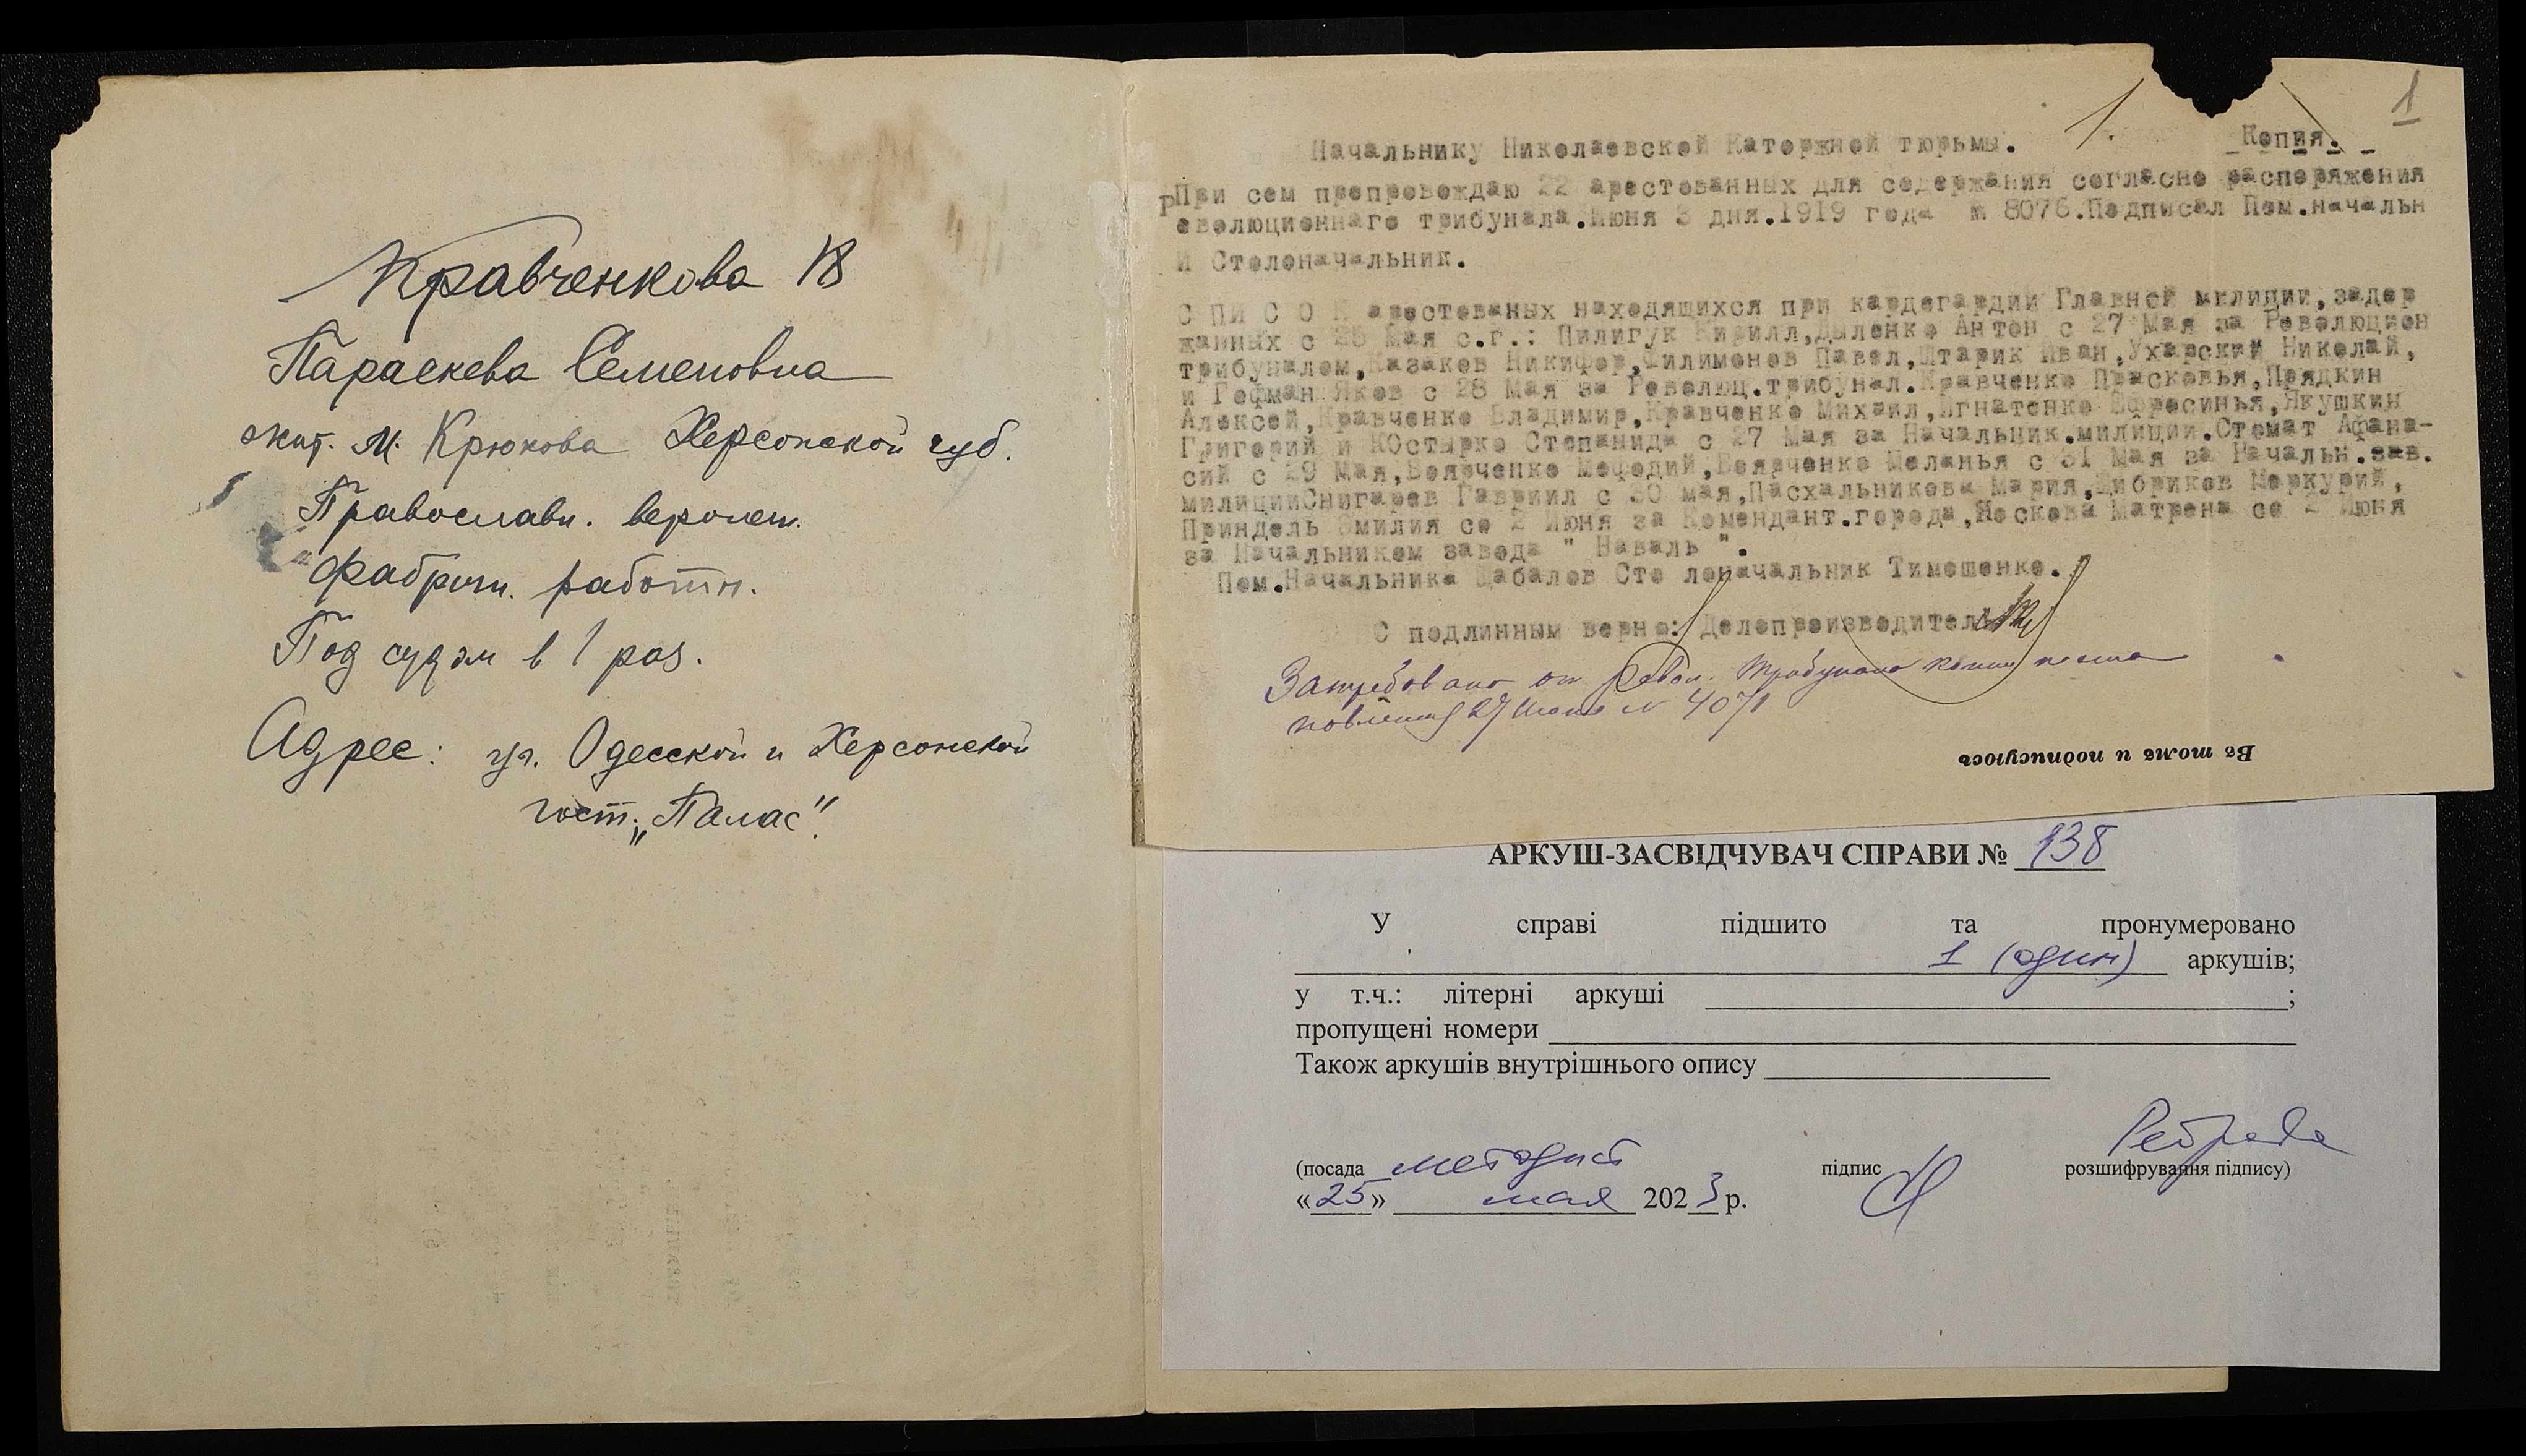 Кравченкова 18
Параскева Семеновна
жит. м. Крюкова Херсонской губ.
Православн. вероисп.
Фабричн. работн.
Под судом в 1 раз.
Адрес: уг. Одесской и Херсонской
гост. „Палас".
1
1.
Копия.
Начальнику Николаевской Каторжной тюрьмы.
При сем препровождаю 22 арестованных для содержания согласно распоряжения
Революционнаго трибунала.Июня 3 дня.1919 года № 8076.Подписал Пом.начальн
и Столоначальник.
С ПИ С О К арестованых находящихся при кардегардии Главной милиции,задер
жанных с 25 Мая с.г.: Пилигук Кирилл,Дыленко Антон с 27 Мая за Революцион
трибуналом,Казаков Никифор,Филимонов Павел,Штарик Иван,Ухавский Николай,
и Гофман Яков с 28 Мая за Революц.трибунал.Кравченко Прасковья,Прядкин
Алексей,Кравченко Владимир,Кравченко Михаил,Игнатенко Ефросинья,Якушкин
Григорий и КОстырко Степанида с 27 Мая за Начальник.милиции.Стомат Афана-
сий с 29 Мая,Боярченко Мефодий,Боярченко Меланья с 31 Мая за Начальн.зав.
милицииСнигарев Гавриил с 30 мая,Пасхальникова Мария,Цибриков Меркурий,
Приндель Эмилия со 2 Июня за Комендант.города,Носкова Матрена со 2 Июня
за Начальником завода " Наваль ".
Пом.Начальника Шабалов Сто лоначальник Тимошенко.
С подлинным верно: Делопроизводитель
Затребовано отРевол. Трибунала копии поста
новления 27 Июня № 4071
Въ томъ и подписуюсь
АРКУШ-ЗАСВІДЧУВАЧ СПРАВИ № 138
У справі підшито та пронумеровано
1 (один) аркушів;
у т.ч.: літерні аркуші ;
пропущені номери
Також аркушів внутрішнього опису
(посада методист підпис розшифрування підпису)
«25» мая 2023 р.